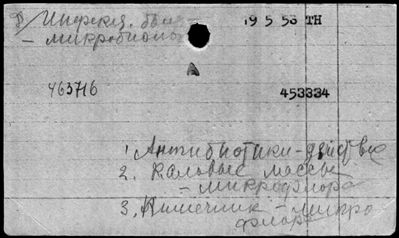 19 5 56 ТН
– микробиоло
463716
453334
1. Антибиотики – действие
2. Каловые массы
– микрофлора
3. Кишечник – микро
флора